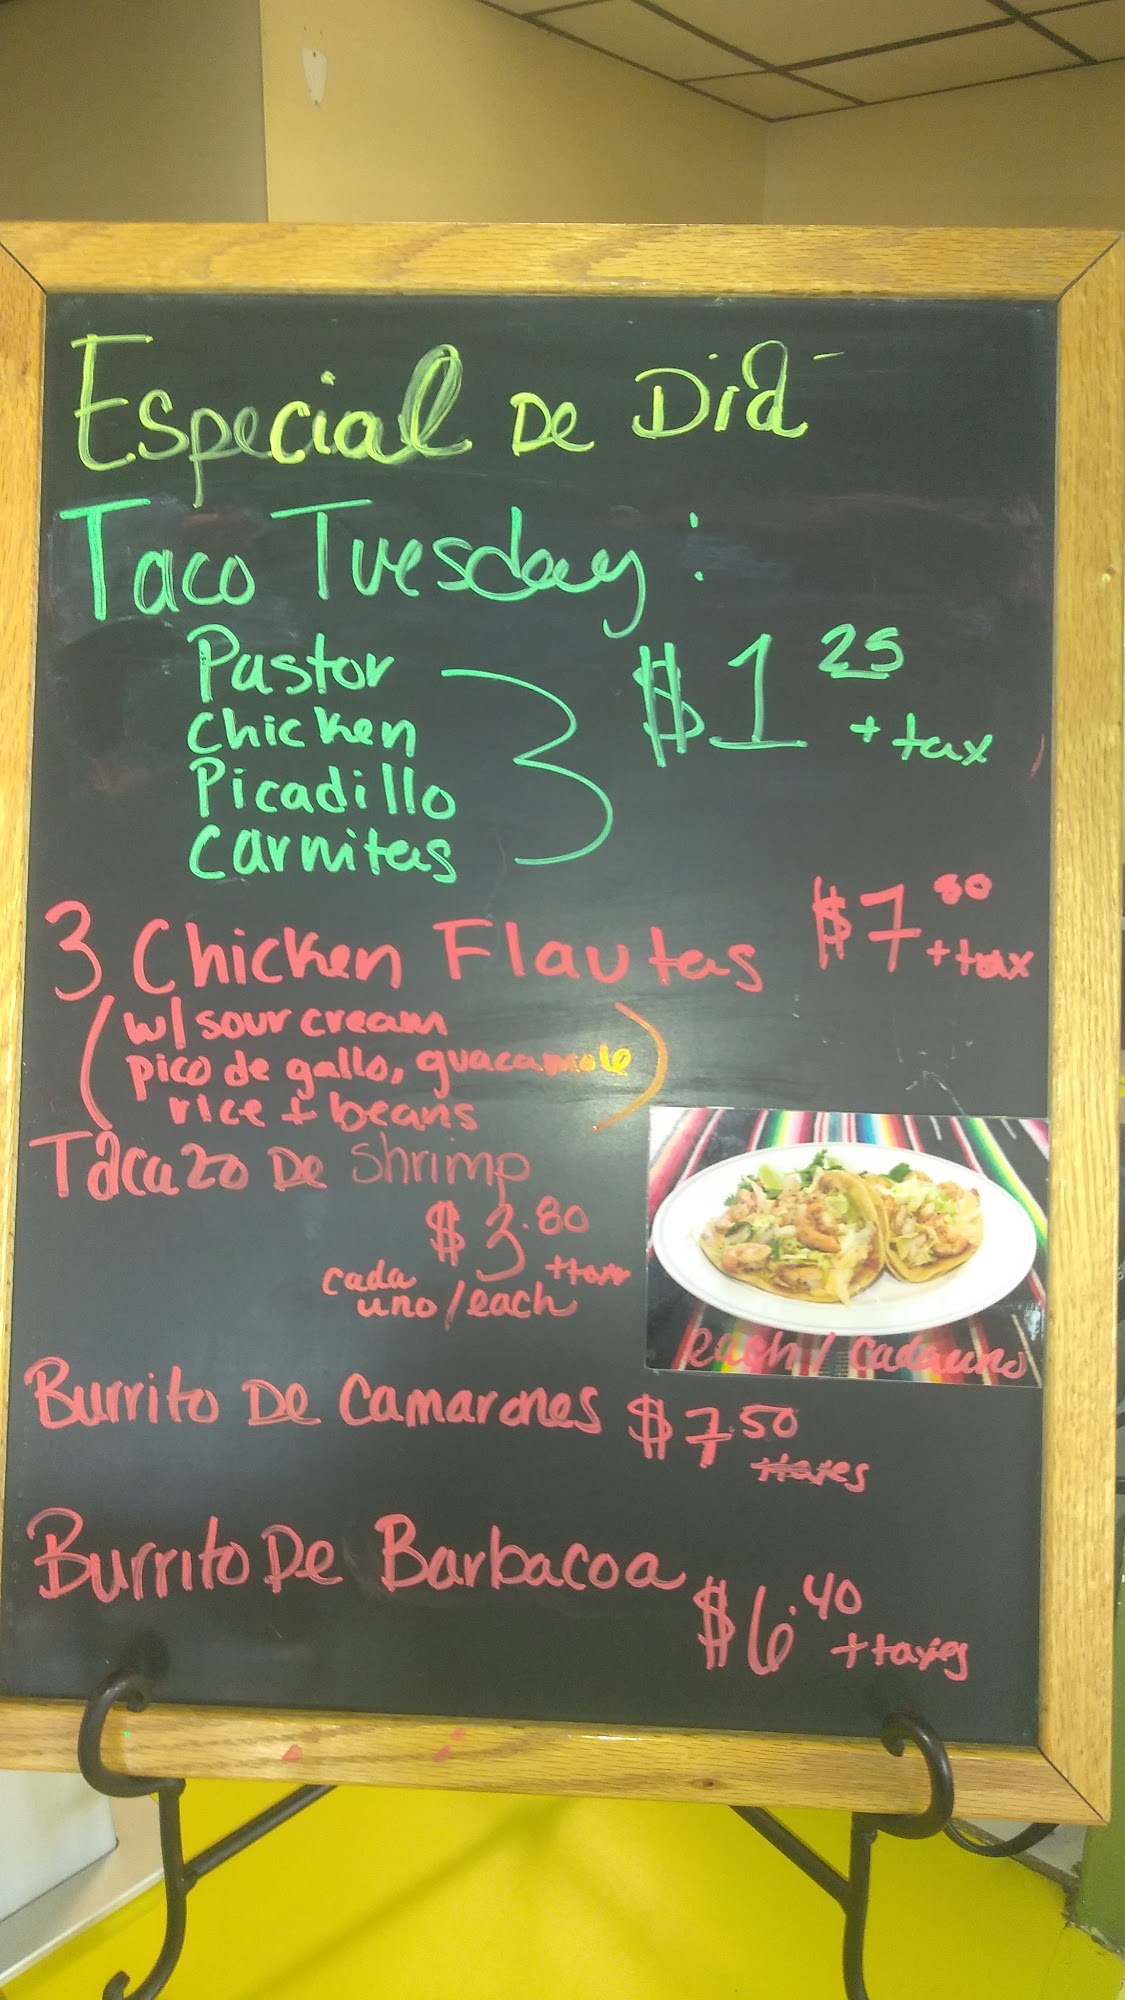 Especial De Dia
Taco Tuesday:
Pastor
Chicken
Picadillo
Carnitas
$1 25
+ tax
3 Chicken Flautas $7 80
+ tax
(w/ sour cream
pico de gallo, guacamole
rice + beans)
Tacazo De Shrimp
$3.80
+tax
cada
uno/each
each/cadauno
Burrito De Camarones $7.50
+taxes
Burrito De Barbacoa
$6.40
+taxes